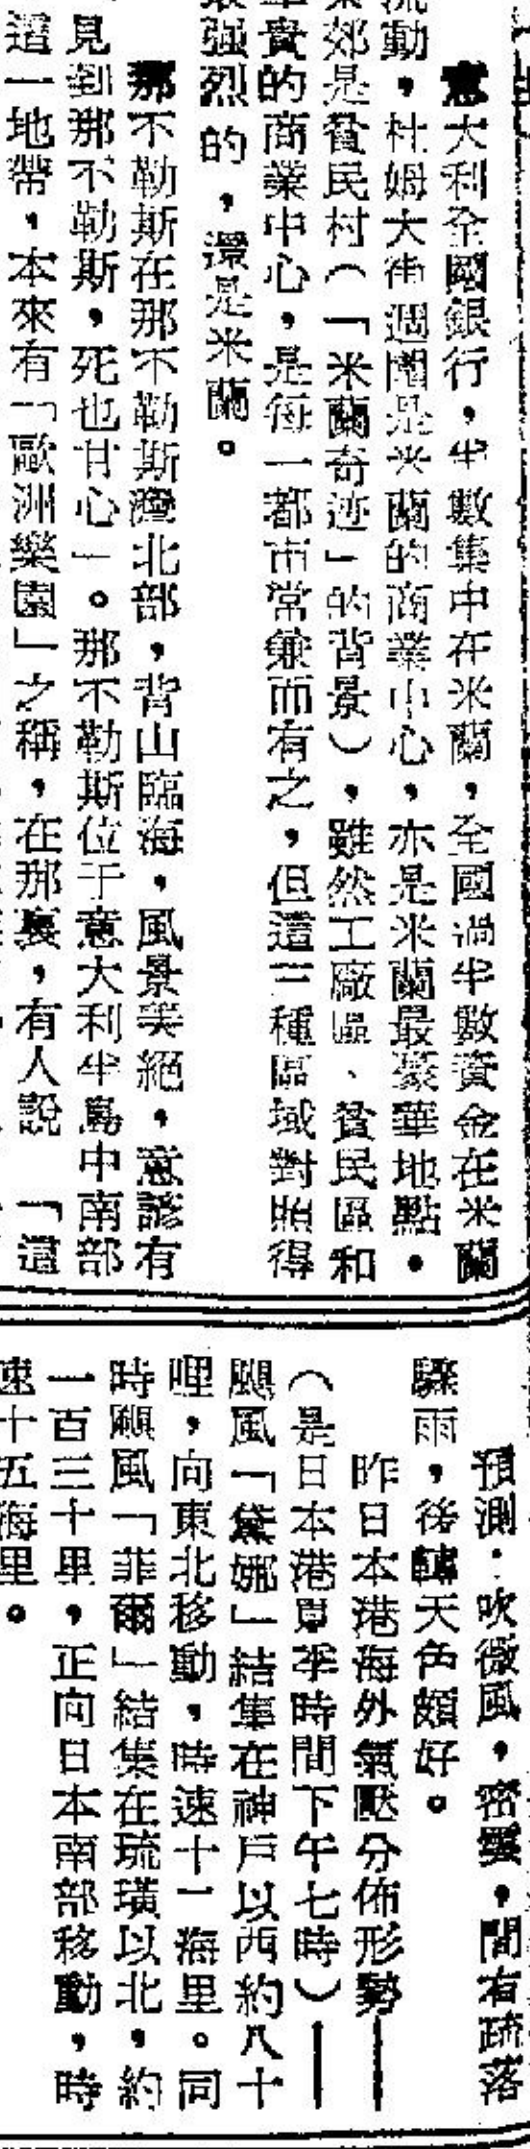 意大利全國銀行，半數集中在米蘭，全國過半數資金在米蘭
流動，杜姆大街週圍是米蘭的商業中心，亦是米蘭最豪華地點。
郊是貧民村（「米蘭奇迹」的背景），雖然工廠區、貧民區和
貴的商業中心，是每一都市常兼而有之，但這三種區域對照得
最强烈的，還是米蘭。
那不勒斯在那不勒斯灣北部，背山臨海，風景美絕，意諺有
見到那不勒斯，死也甘心」。那不勒斯位于意大利半島中南部
這一地帶，本來有「歐洲樂園」之稱，在那裏，有人說「這
預測：吹微風，密雲，間有疏落
驟雨，後轉天色頗好。
昨日本港海外氣壓分佈形勢——
（是日本港夏季時間下午七時）——
颶風「黛娜」結集在神戶以西約八十
哩，向東北移動，時速十一海里。同
時颶風「菲爾」結集在琉璜以北，約
一百三十里，正向日本南部移動，時
速十五海里。